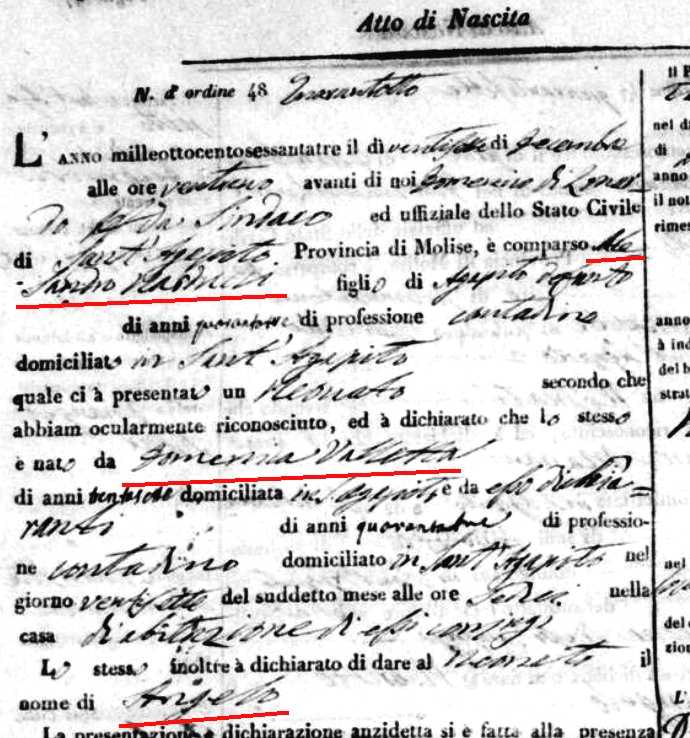 Atto di Nascita
N. d'ordine 48 Quarantotto
L'ANNO milleottocentosessantatre il dì ventisette di Decembre
alle ore ventuno avanti di noi Domenico di Lonar-
do Sindaco ed uffiziale dello Stato Civile
di Sant'Agapito Provincia di Molise, è comparso Ale
sandro figlio di Agapito
di anni di professione contadino
domiciliato in Sant'Agapito
quale ci à presentato un Neonato secondo che
abbiam ocularmente riconosciuto, ed à dichiarato che lo stesso
è nato da Domenica Valletta
di anni domiciliata in S. Agapito, e da esso dichia=
ranti di anni di professio-
ne contadino domiciliato in Sant'Agapito nel
giorno ventisette del suddetto mese alle ore sedici nella
casa di abitazione di essi coniugi
Lo stesso inoltre à dichiarato di dare al Neonato il
nome di Angelo
La presentazione e dichiarazione anzidetta si è fatta alla presenza